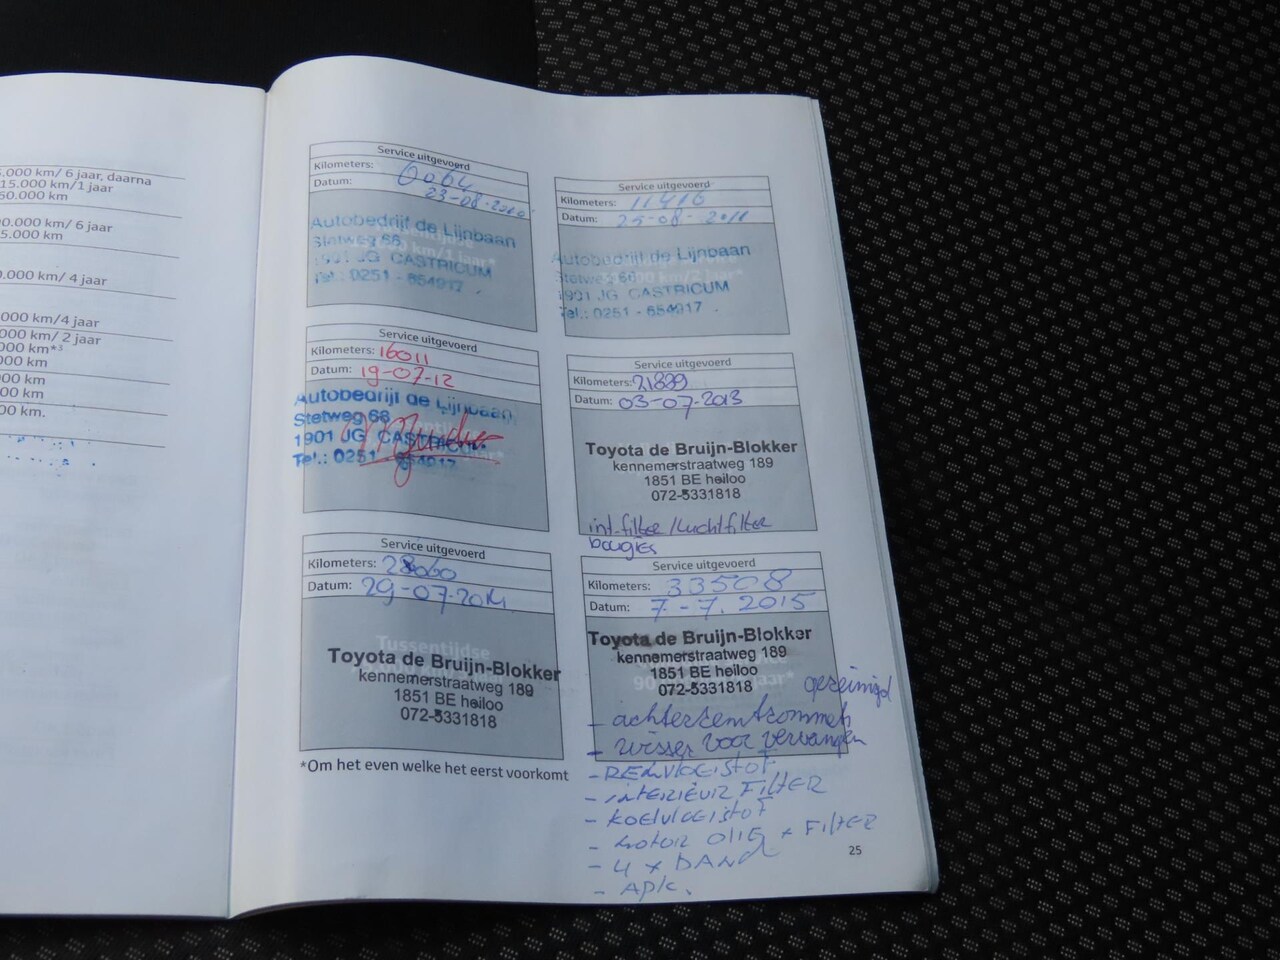 .000 km/ 6 jaar, daarna
15.000 km/1 jaar
60.000 km
00.000 km/ 6 jaar
5.000 km
0.000 km/ 4 jaar
000 km/4 jaar
000 km/ 2 jaar
000 km*³
000 km
000 km
000 km
00 km.
Service uitgevoerd
Kilometers: 6064
Datum: 23-08-2010
Autobedrijf de Lijnbaan
Stetweg 68
1901 JG CASTRICUM
Tel.: 0251 - 654917
Service uitgevoerd
Kilometers: 11416
Datum: 25-08-2011
Autobedrijf de Lijnbaan
Stetweg 68
1901 JG CASTRICUM
Tel.: 0251 - 654917
Service uitgevoerd
Kilometers: 16011
Datum: 19-07-12
Autobedrijf de Lijnbaan
Stetweg 68
1901 JG CASTRICUM
Tel.: 0251 - 654917
Service uitgevoerd
Kilometers: 21839
Datum: 03-07-2013
Toyota de Bruijn-Blokker
kennemerstraatweg 189
1851 BE heiloo
072-5331818
int.filter/luchtfilter
bougies
Service uitgevoerd
Kilometers: 28060
Datum: 29-07-2014
Tussentijdse
Toyota de Bruijn-Blokker
kennemerstraatweg 189
1851 BE heiloo
072-5331818
Service uitgevoerd
Kilometers: 33508
Datum: 7-7. 2015
Toyota de Bruijn-Blokker
kennemerstraatweg 189
1851 BE heiloo
072-5331818
gereinigd
- achterremtrommels
- wisser voor vervangen
- REMVLOEISTOF
- INTERIEUR FILTER
- KOELVLOEISTOF
- MOTOR OLIE + FILTER
- 4 x BAND
- APK.
*Om het even welke het eerst voorkomt
25